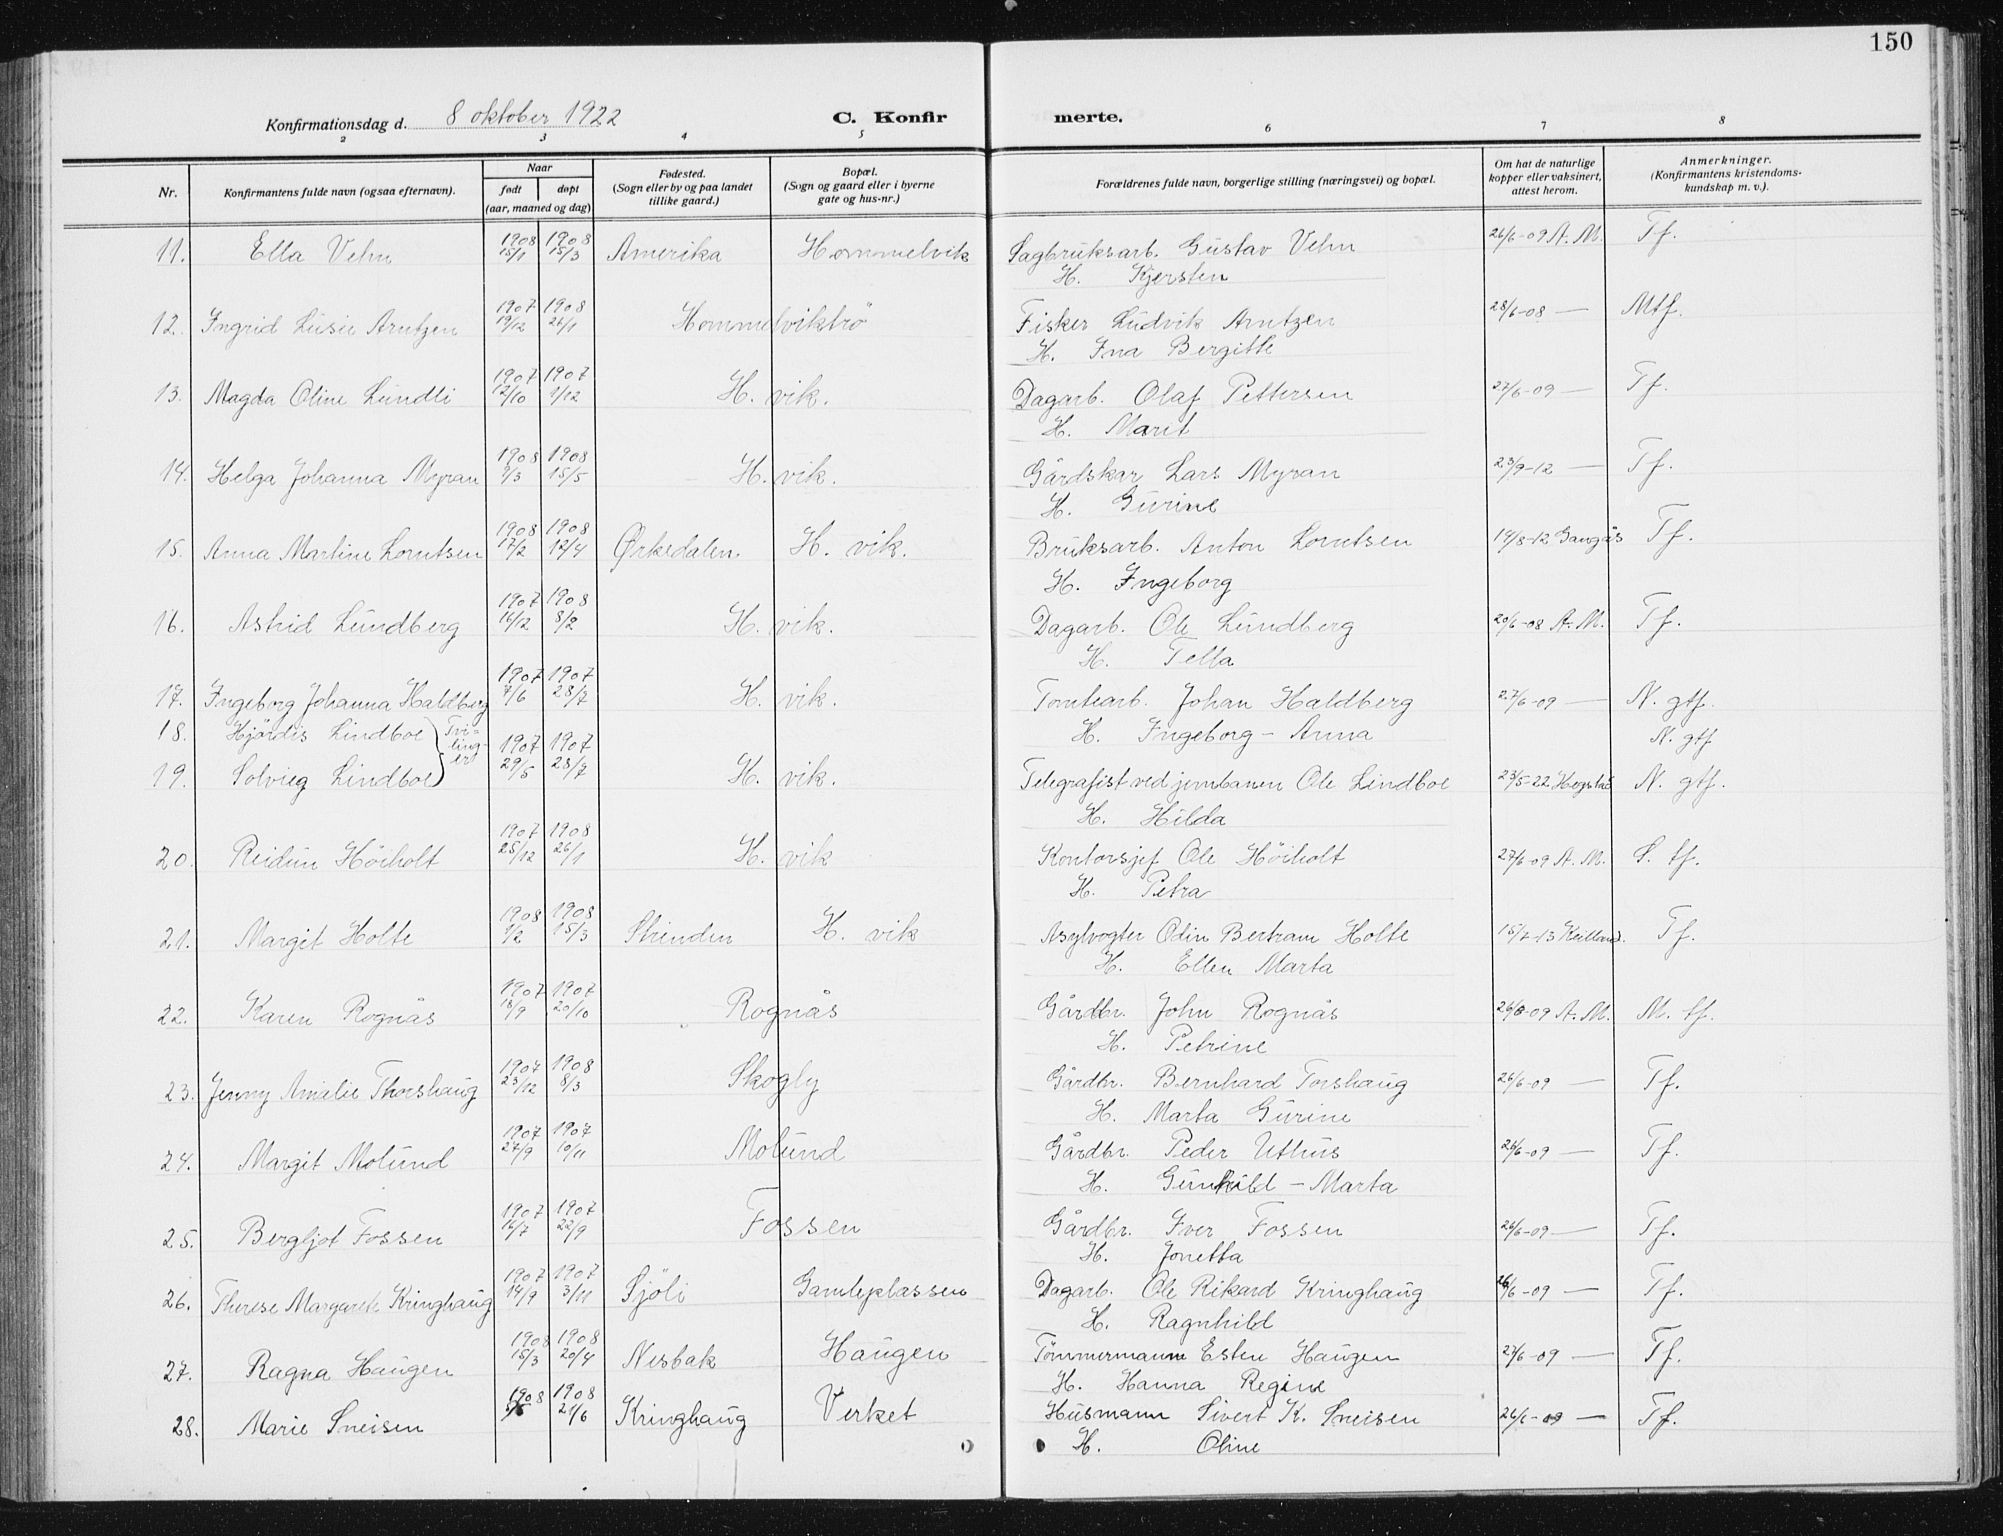 150
Konfirmationsdag d. 8 oktober 1922 C. Konfirmerte.
2 3 4 5 6 7 8
Nr. Konfirmantens fulde navn (ogsaa efternavn). Naar født døpt (aar, maaned og dag) Fødested. (Sogn eller by og paa landet tillike gaard.) Bopæl. (Sogn og gaard eller i byerne gate og hus-nr.) Forældrenes fulde navn, borgerlige stilling (næringsvei) og bopæl. Om hat de naturlige kopper eller vaksinert, attest herom. Anmerkninger. (Konfirmantens kristendomskundskap m. v.).
11. Ella Vehn 1908 15/1 1908 15/3 Amerika Hommelvik Sagbruksarb. Gustav Vehn 26/6-09 A. M. Tf.
H. Kjersten
12. Ingrid Lusie Arntzen 1907 19/12 1908 26/1 Hommelviktrö Fisker Ludvik Arntzen 28/6-08 — Mtf.
H. Ina Bergitte
13. Magda Oline Lundli 1907 12/10 1907 1/12 H. vik. Dagarb. Olaf Pettersen 27/6-09 — Tf.
H. Marit
14. Helga Johanna Myran 1908 9/3 1908 15/5 H. vik. Gårdskar Lars Myran 23/9-12 — Tf.
H. Gurine
15. Anna Martine Lorntsen 1908 17/2 1908 12/4 Ørkedalen H. vik. Bruksarb. Anton Lorntsen 19/8-12 Gangås Tf.
H. Ingeborg
16. Astrid Lundberg 1907 16/12 1908 8/2 H. vik. Dagarb. Ole Lundberg 20/6-08 A. M. Tf.
H. Tella
17. Ingeborg Johanna Haldberg 1907 7/6 1907 28/7 H. vik. Tomtearb. Johan Haldberg 27/6-09 — N. gtf.
18. Hjördis Lindboe } Tvilinger H. Ingeborg - Anna N. gtf
19. Solvieg Lindboe 1907 29/5 1907 28/7 H. vik. Telegrafist ved jernbanen Ole Lindboe 23/5-22 Hegstad N. gtf.
H. Hilda
20. Reidun Höiholt 1907 25/12 1908 26/1 H. vik Kontorsjef Ole Höiholt 27/6-09 A. M. S. tf.
H. Petra
21. Margit Holte 1908 1/2 1908 15/3 Strinden H. vik Asylvogter Odin Bertram Holte 15/7-13 Keilland. Tf.
H. Ellen Marta
22. Karen Rognås 1907 18/9 1907 20/10 Rognås Gårdbr. John Rognås 26/6-09 A. M. M. tf.
H. Petrine
23. Jenny Amalie Thorshaug 1907 23/12 1908 8/3 Skogly Gårdbr. Bernhard Torshaug 26/6-09 — Tf.
H. Marta Gurine
24. Margit Molund 1907 27/9 1907 10/11 Molund Gårdbr. Peder Uthus 26/6-09 — Tf.
H. Gunhild - Marta
25. Bergljot Fossen 1907 16/7 1907 22/9 Fossen Gårdbr. Iver Fossen 26/6-09 — Tf.
H. Jonetta
26. Therese Margarete Kringhaug 1907 14/9 1907 3/11 Sjöli Gamleplassen Dagarb. Ole Rikard Kringhaug 26/6-09 — Tf.
H. Ragnhild
27. Ragna Haugen 1908 15/3 1908 20/4 Nesbak Haugen Tömmermann Esten Haugen 27/6-09 — Tf.
H. Hanna Regine
28. Marie Sneisen 1908 1908 21/6 Kringhaug Verket Husmann Sivert K. Sneisen 26/6-09 — Tf.
H. Oline